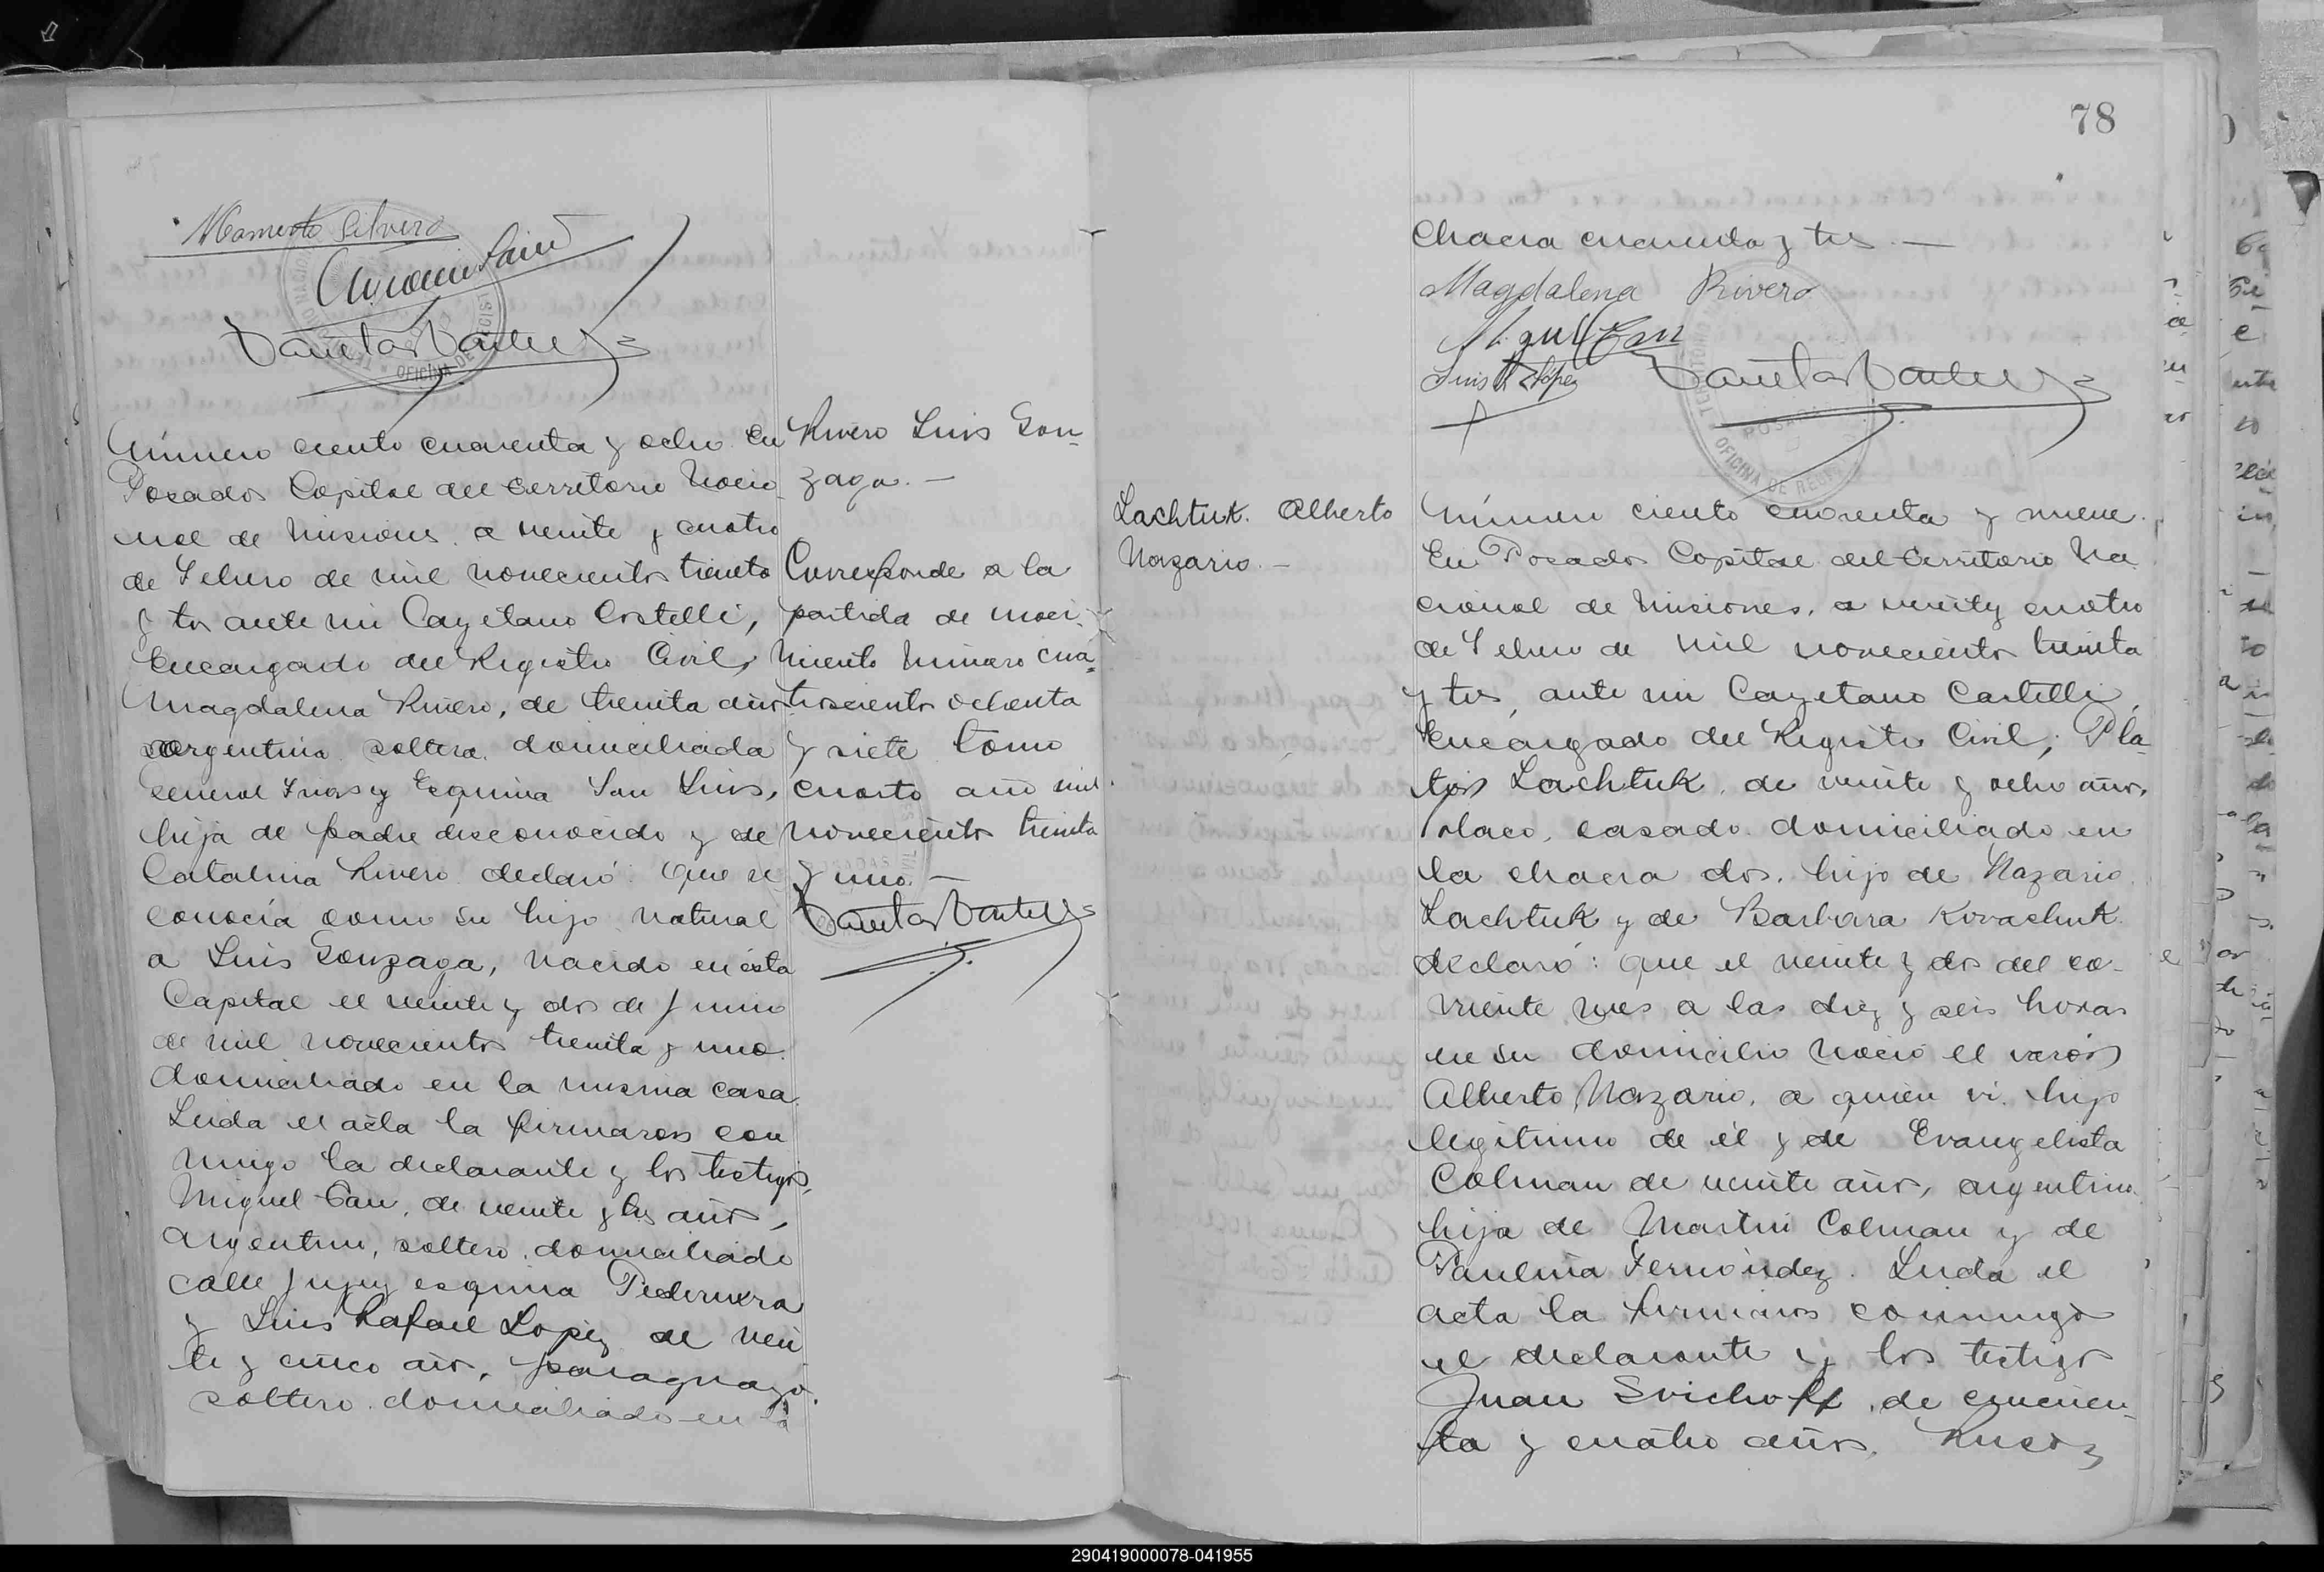 Mamerto Silvero
Número ciento cuarenta y ocho. En
Posadas Capital del Territorio Nacio
nal de Misiones, a veinte y cuatro
de Febrero de mil novecientos treinta
y tres ante mi Cayetano Castelli,
Encargado del Registro Civil,
Magdalena Rivero, de treinta años
argentina soltera, domiciliada
General Frias y Esquina San Luis,
hija de padre desconocido y de
Catalina Rivero declaró: Que re
conocía como su hijo natural
a Luis Gonzaga, nacido en ésta
Capital el veinte y dos de Junio
de mil novecientos treinta y uno.
domiciliado en la misma casa.
Leida el acta la firmaron con
migo la declarante y los testigos,
Miguel Gau, de veinte y tres años,
argentino, soltero, domiciliado
calle Jujuy esquina Pedernera
y Luis Rafael Lopez de vein
te y cinco años, paraguayo.
soltero. domiciliado en la
Rivero Luis Gon-
zaga. —
Corresponde a la
partida de naci-
miento número cua-
trocientos ochenta
y siete tomo
cuarto año mil
novecientos treinta
y uno. —
78
Chacra cuarenta y tres. —
Magdalena Rivero
Luis R López
Lachtuk. Alberto
Nazario. —
Número ciento cuarenta y nueve.
En Posadas Capital del Territorio Na
cional de Misiones, a veinte y cuatro
de Febrero de mil novecientos treinta
y tres, ante mi Cayetano Castelli,
Encargado del Registro Civil, Pla-
tón Lachtuk, de veinte y ocho años,
Polaco, casado domiciliado en
la chacra dos, hijo de Nazario
Lachtuk y de Barbara Kovachuk
declaró: que el veinte y dos del co-
rriente mes a las diez y seis horas
en su domicilio nació el varón
Alberto Nazario, a quien vi. hijo
legítimo de él y de Evangelista
Colman de veinte años, argentina
hija de Martin Colman y de
Paulina Fernández. Leida el
acta la firmaron conmigo
el declarante y los testigos
Juan Svichoff, de cincuen-
ta y cuatro años, Ruso,
290419000078-041955